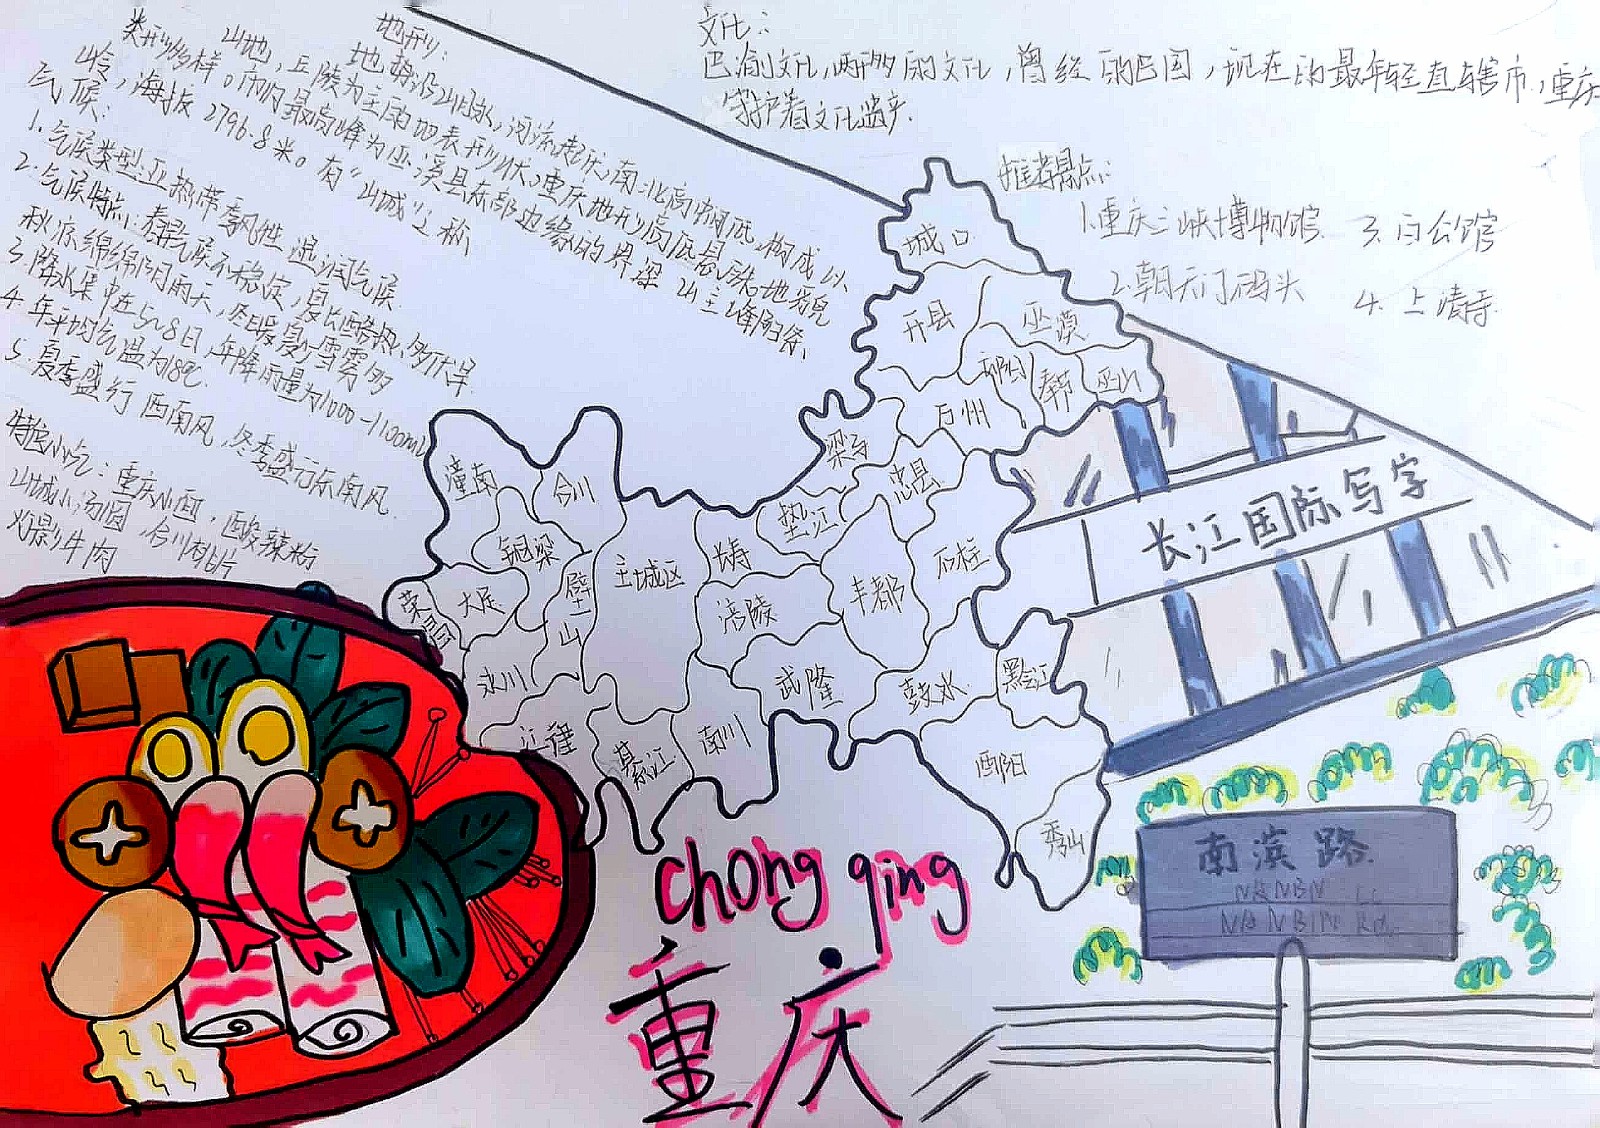 地形：
地势沿山河脉，河流起伏，南北高中间低，构成以
山地，丘陵为主南地表形状，重庆地形高低悬殊，地貌
类型多样。市内最高峰为巫溪县东部边缘的界梁山主峰阴条
岭，海拔2796.8米。有“山城”之称
气候：
1.气候类型：亚热带季风性湿润气候
2.气候特点：春早气候不稳定，夏长酷热，多伏旱
秋凉绵绵阴雨天，冬暖夏少雪雾多
3.降水集中在5~8日，年降雨量为1000-1100mm
4.年平均气温为18℃
5.夏季盛行西南风，冬季盛行东南风
特色小吃：重庆小面，酸辣粉
山城小汤圆，合川桃片
火影牛肉
文化：
巴渝文化，两形多雨的文化，曾经的巴国，现在的最年轻直辖市，重庆
守护着文化遗产
推荐景点：
1.重庆三峡博物馆 3.白公馆
2.朝天门码头 4.上清寺
城口
开县
巫溪
云阳
奉节
巫山
万州
梁平
忠县
垫江
石柱
潼南
合川
铜梁
主城区
长寿
丰都
荣昌
大足
璧山
涪陵
永川
武隆
彭水
黔江
江津
綦江
南川
酉阳
秀山
长江国际写字
南滨路
NANBIN Rd.
chong qing
重庆